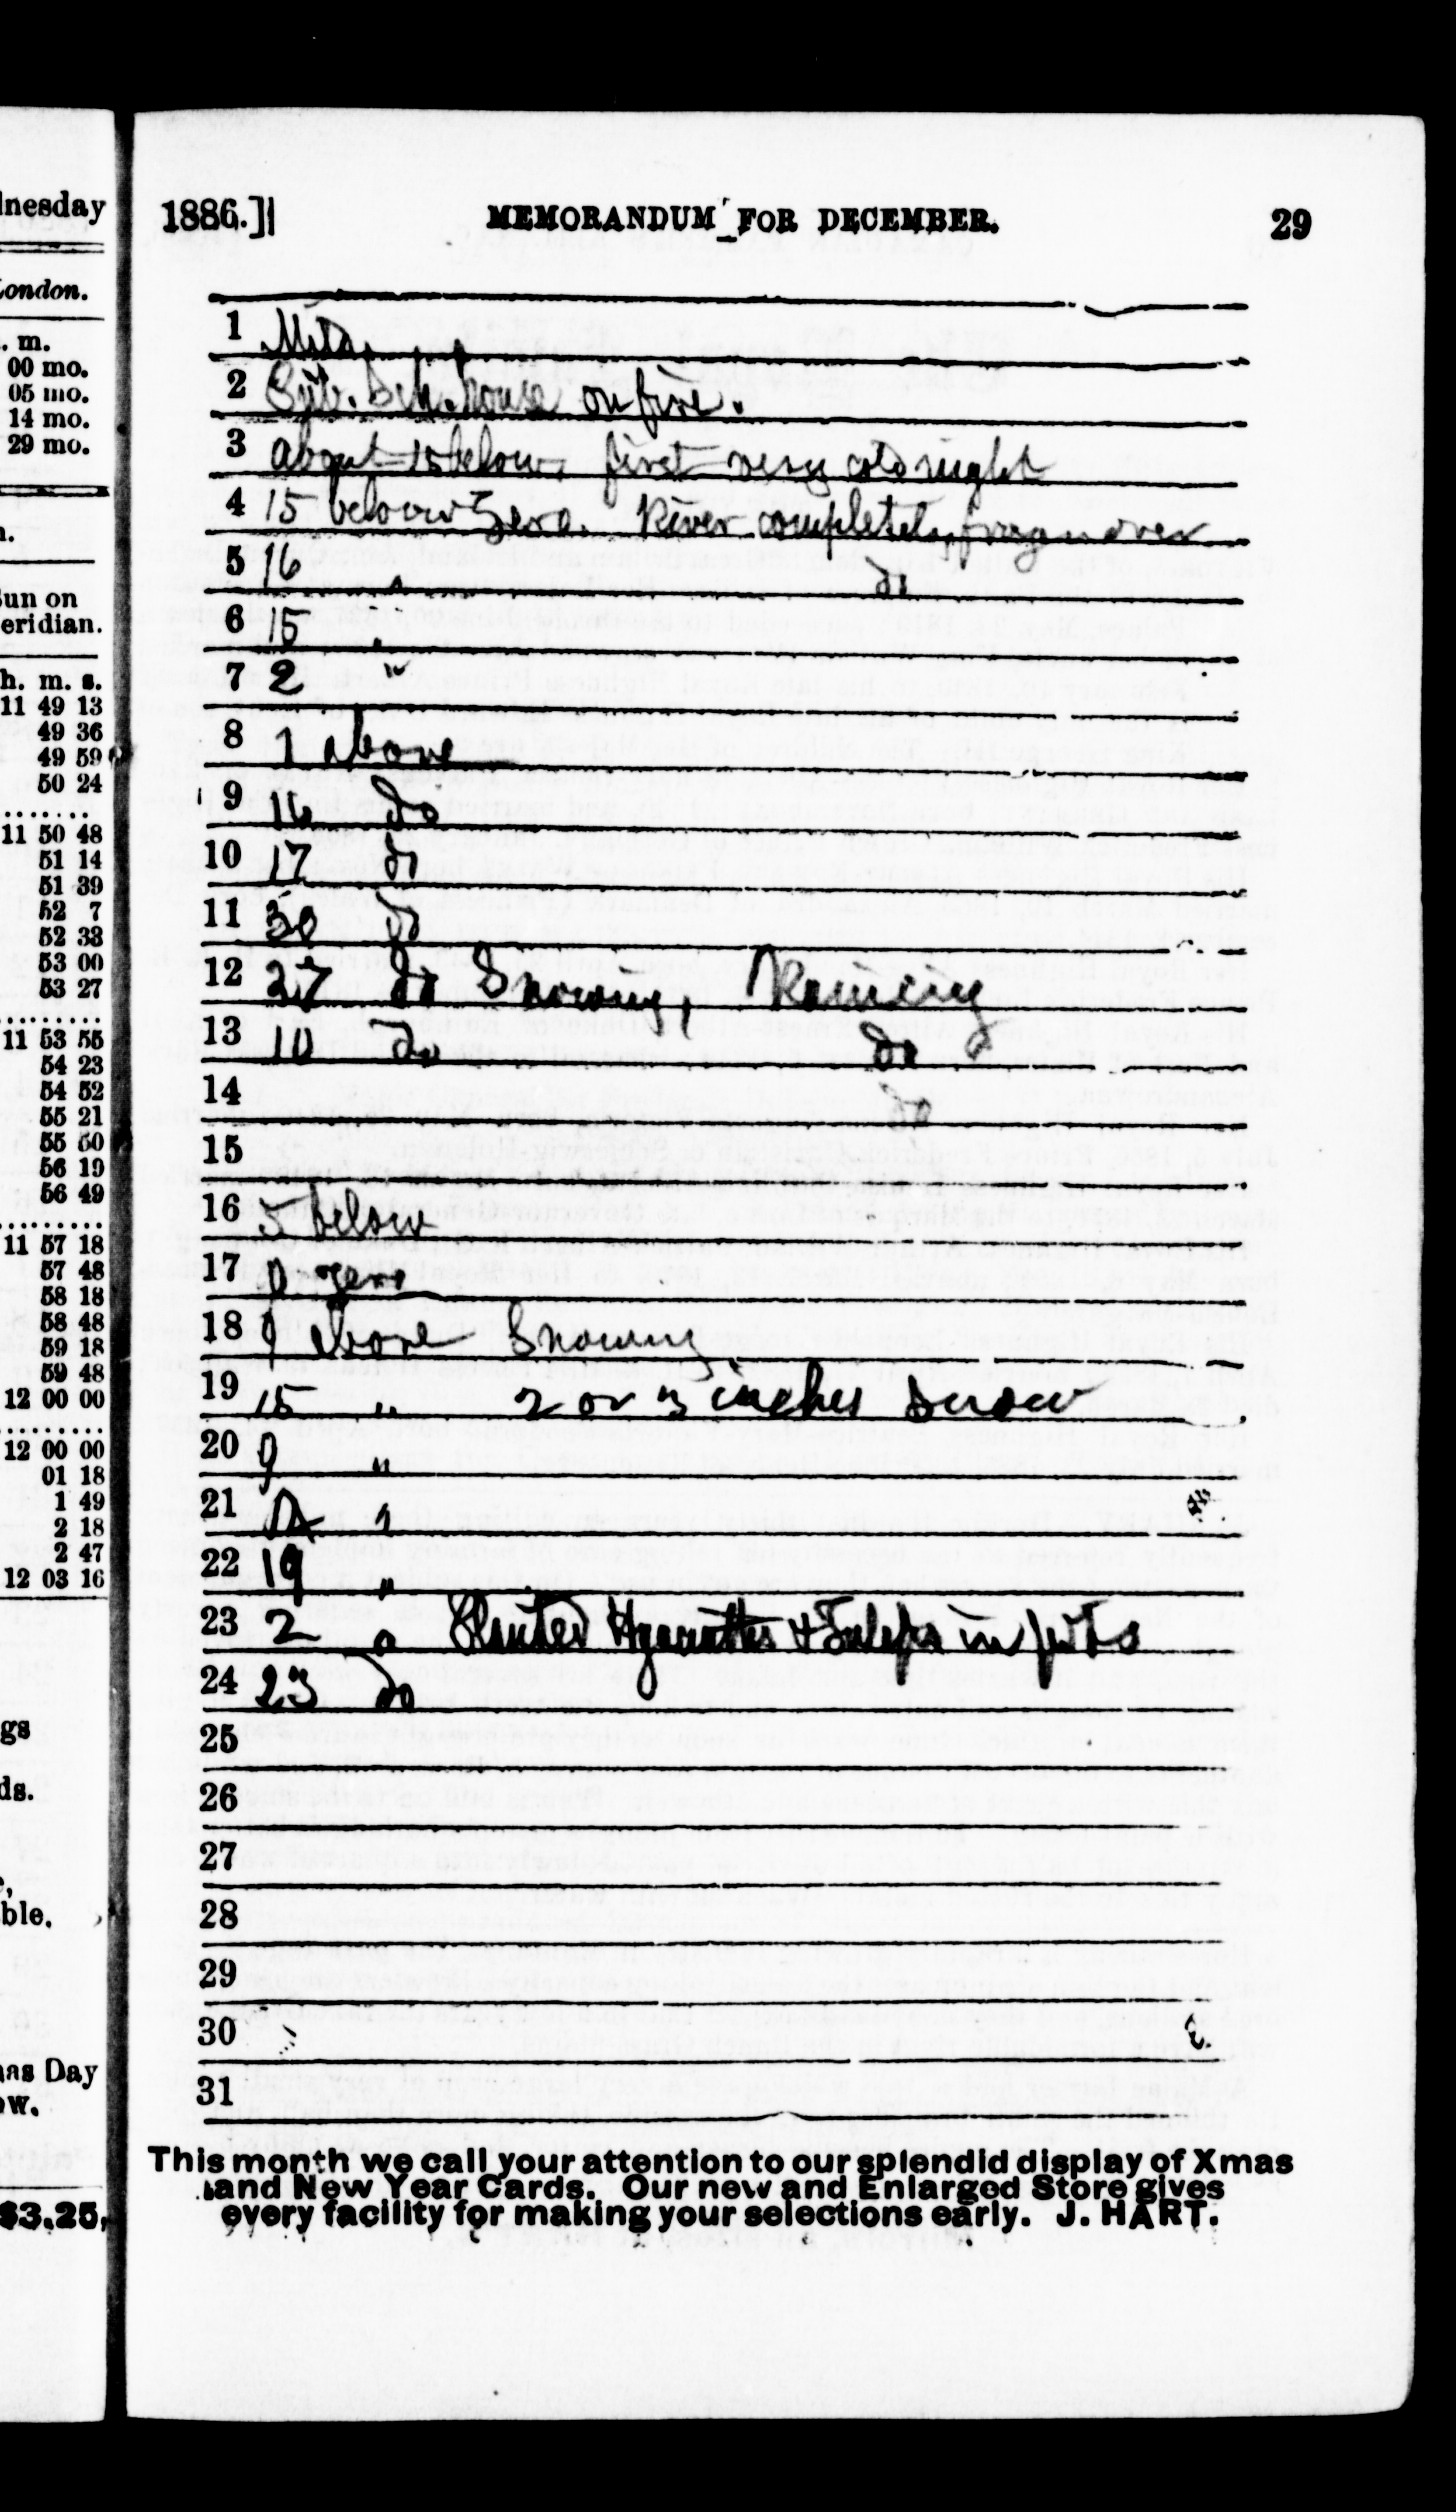 dnesday
London.
. m.
00 mo.
05 mo.
14 mo.
29 mo.
Sun on
eridian.
h. m. s.
11 49 13
49 36
49 59
50 24
........
11 50 48
51 14
51 39
52 7
52 33
53 00
53 27
........
11 53 55
54 23
54 52
55 21
55 50
56 19
56 49
........
11 57 18
57 48
58 18
58 48
59 18
59 48
12 00 00
........
12 00 00
01 18
1 49
2 18
2 47
12 03 16
gs
ds.
ble.
as Day
ow.
$3.25,
1886.] MEMORANDUM FOR DECEMBER. 29
1 Mild
2 house on fire.
3 about 15 below, first very cold night
4 15 below Zero. River completely frozen over
5 16 " do
6 15 "
7 2 "
8 1 above
9 16 do
10 17 do
11 30 do
12 27 do Snowing, Raining
13 10 do do
14 do
15
16 5 below
17 0 zero
18 9 above Snowing
19 15 " 2 or 3 inches snow
20 9 "
21 "
22 19 "
23 2 " Planted Hyacinths & Tulips in pots
24 23 do
25
26
27
28
29
30
31
This month we call your attention to our splendid display of Xmas
and New Year Cards. Our new and Enlarged Store gives
every facility for making your selections early. J. HART.